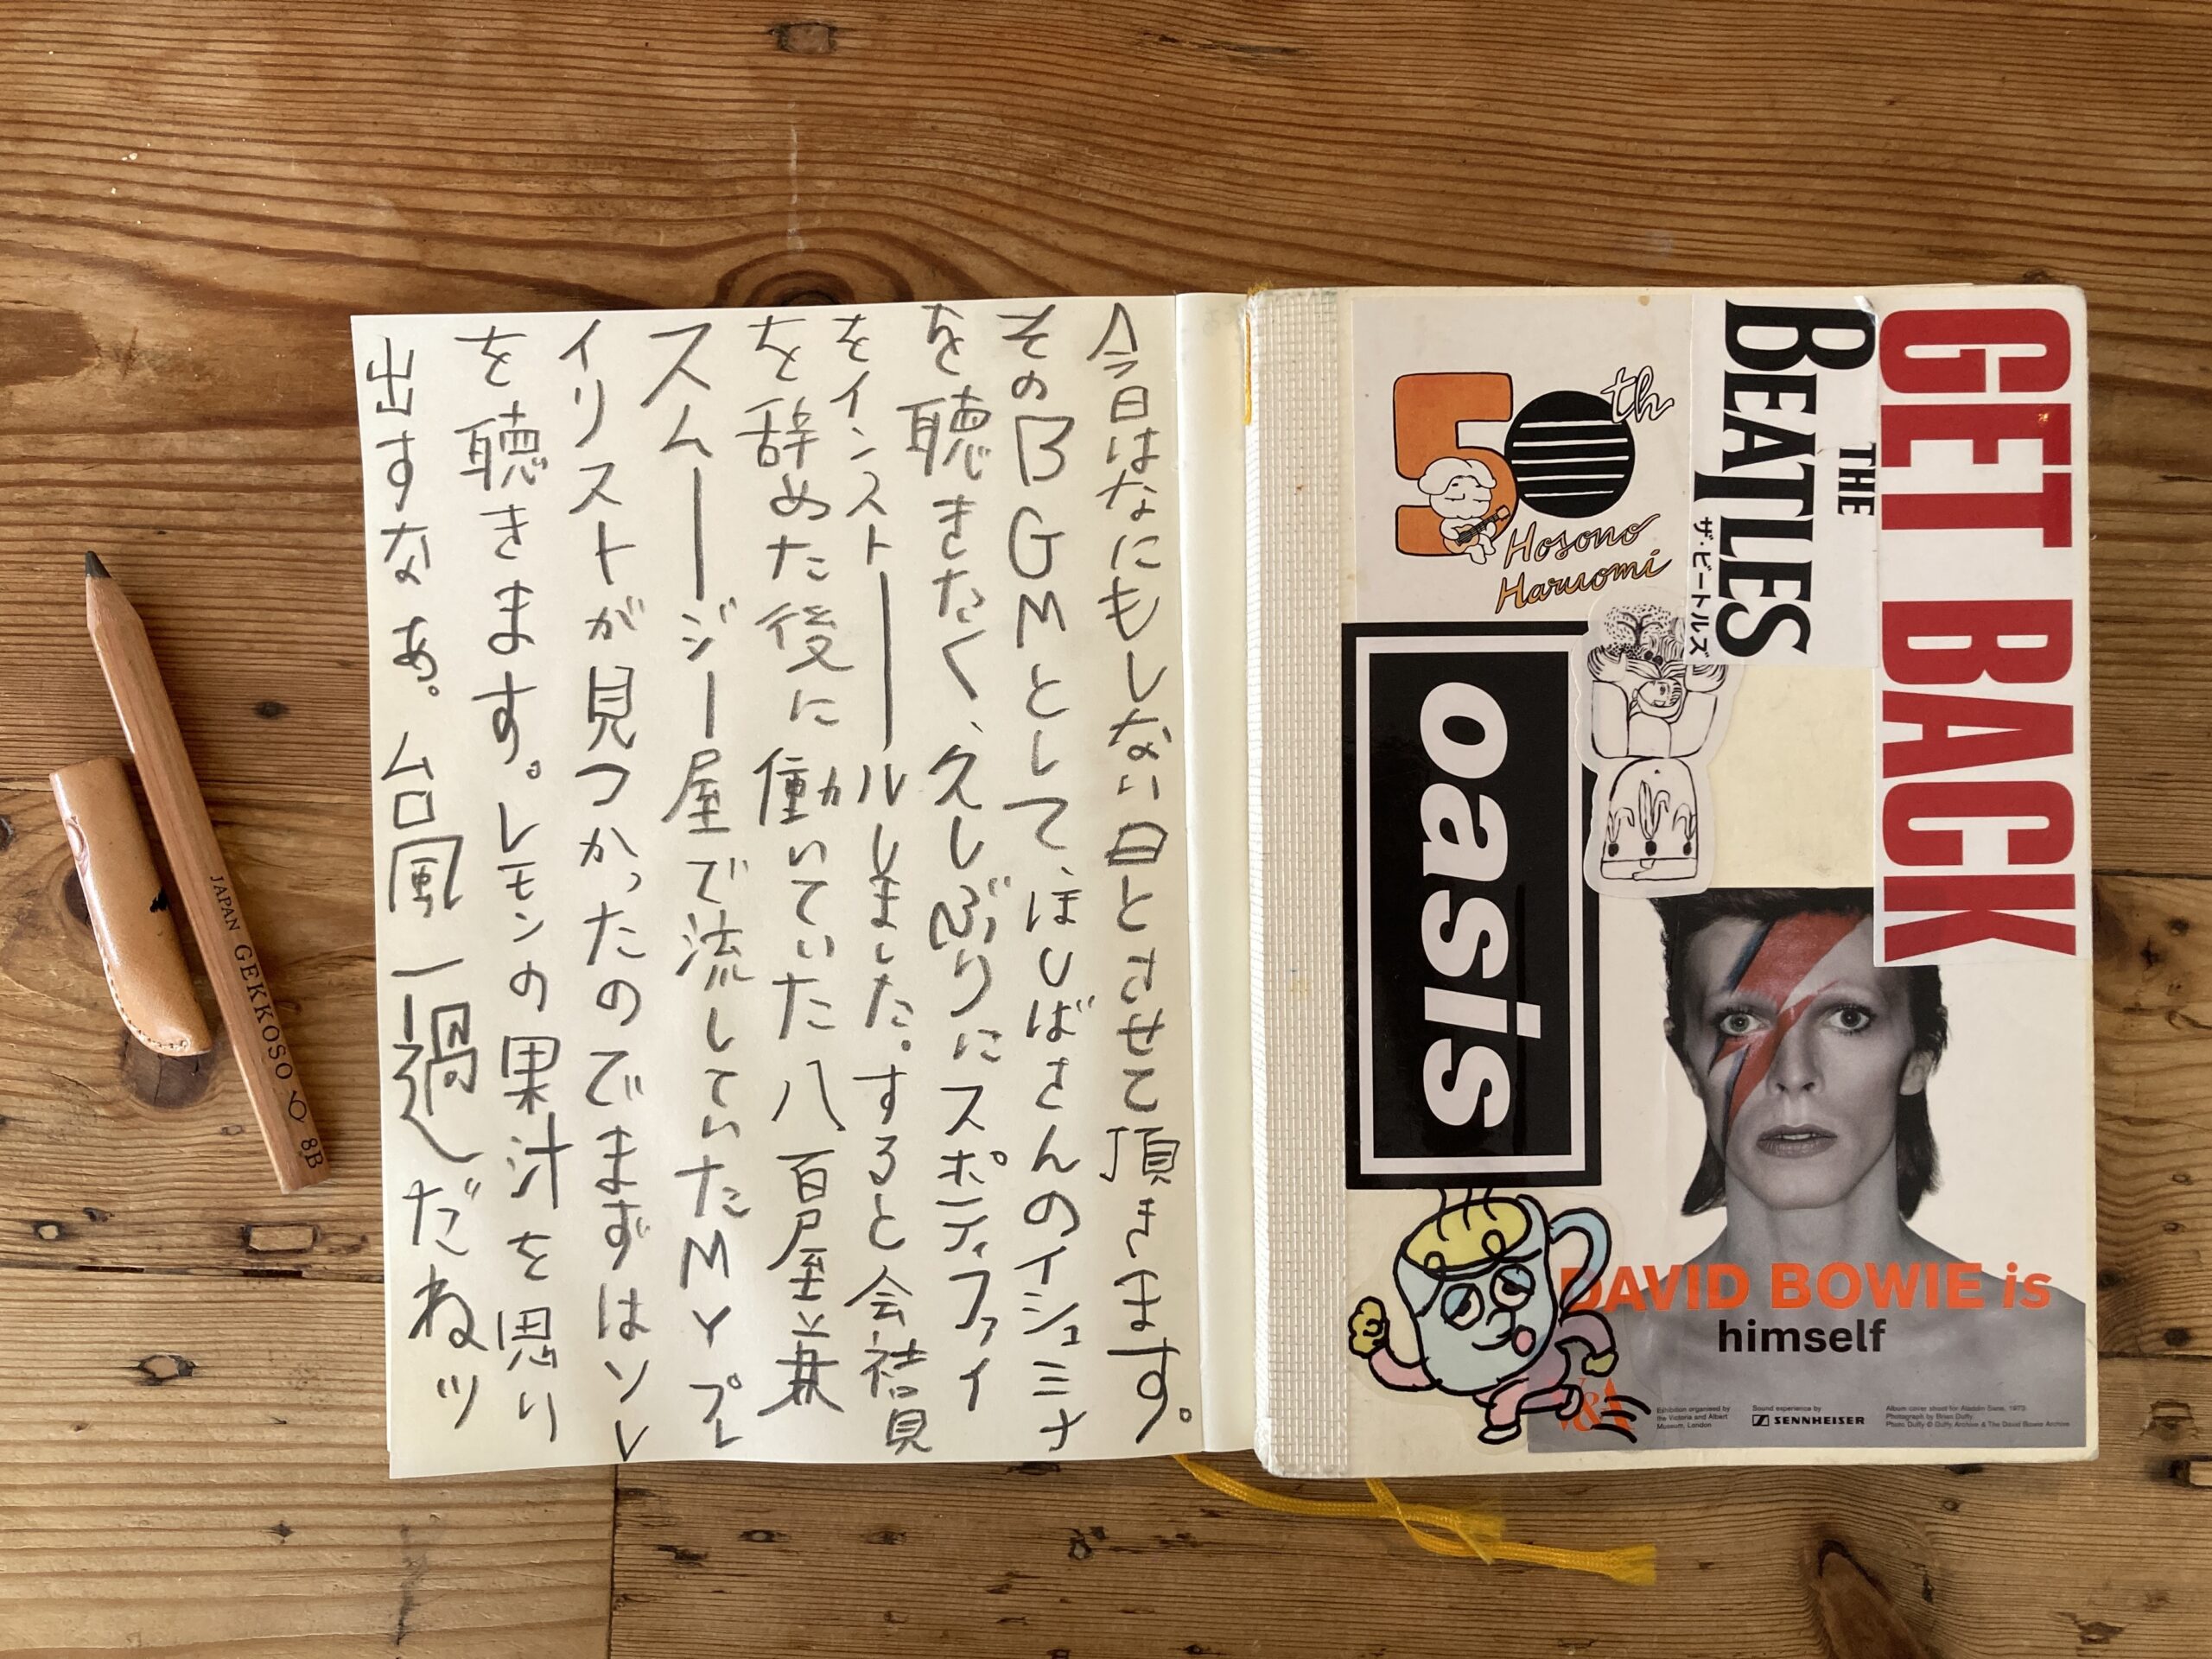 今日はなにもしない日とさせて頂きます。
そのBGMとして、ほしばさんのイシュミナ
を聴きたく、久しぶりにスポティファイ
をインストールしました。すると会社員
を辞めた後に働いていた八百屋兼
スムージー屋で流していたMYプレ
イリストが見つかったのでまずはソレ
を聴きます。レモンの果汁を思い
出すなぁ。台風一過だねッ
GET BACK
THE
BEATLES
ザ・ビートルズ
50th
Hosono
Haruomi
oasis
DAVID BOWIE is
himself
V&A
Exhibition organised by
the Victoria and Albert
Museum, London
Sound experience by
SENNHEISER
Album cover shoot for Aladdin Sane, 1973
Photograph by Brian Duffy
Photo Duffy © Duffy Archive & The David Bowie Archive
JAPAN GEKKOSO 8B